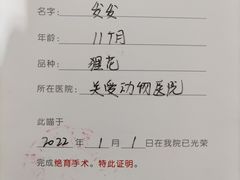 名字：发发
年龄：11个月
品种：狸花
所在医院：关爱动物医院
此喵于
2022年1月1日在我院已光荣
完成绝育手术。特此证明。